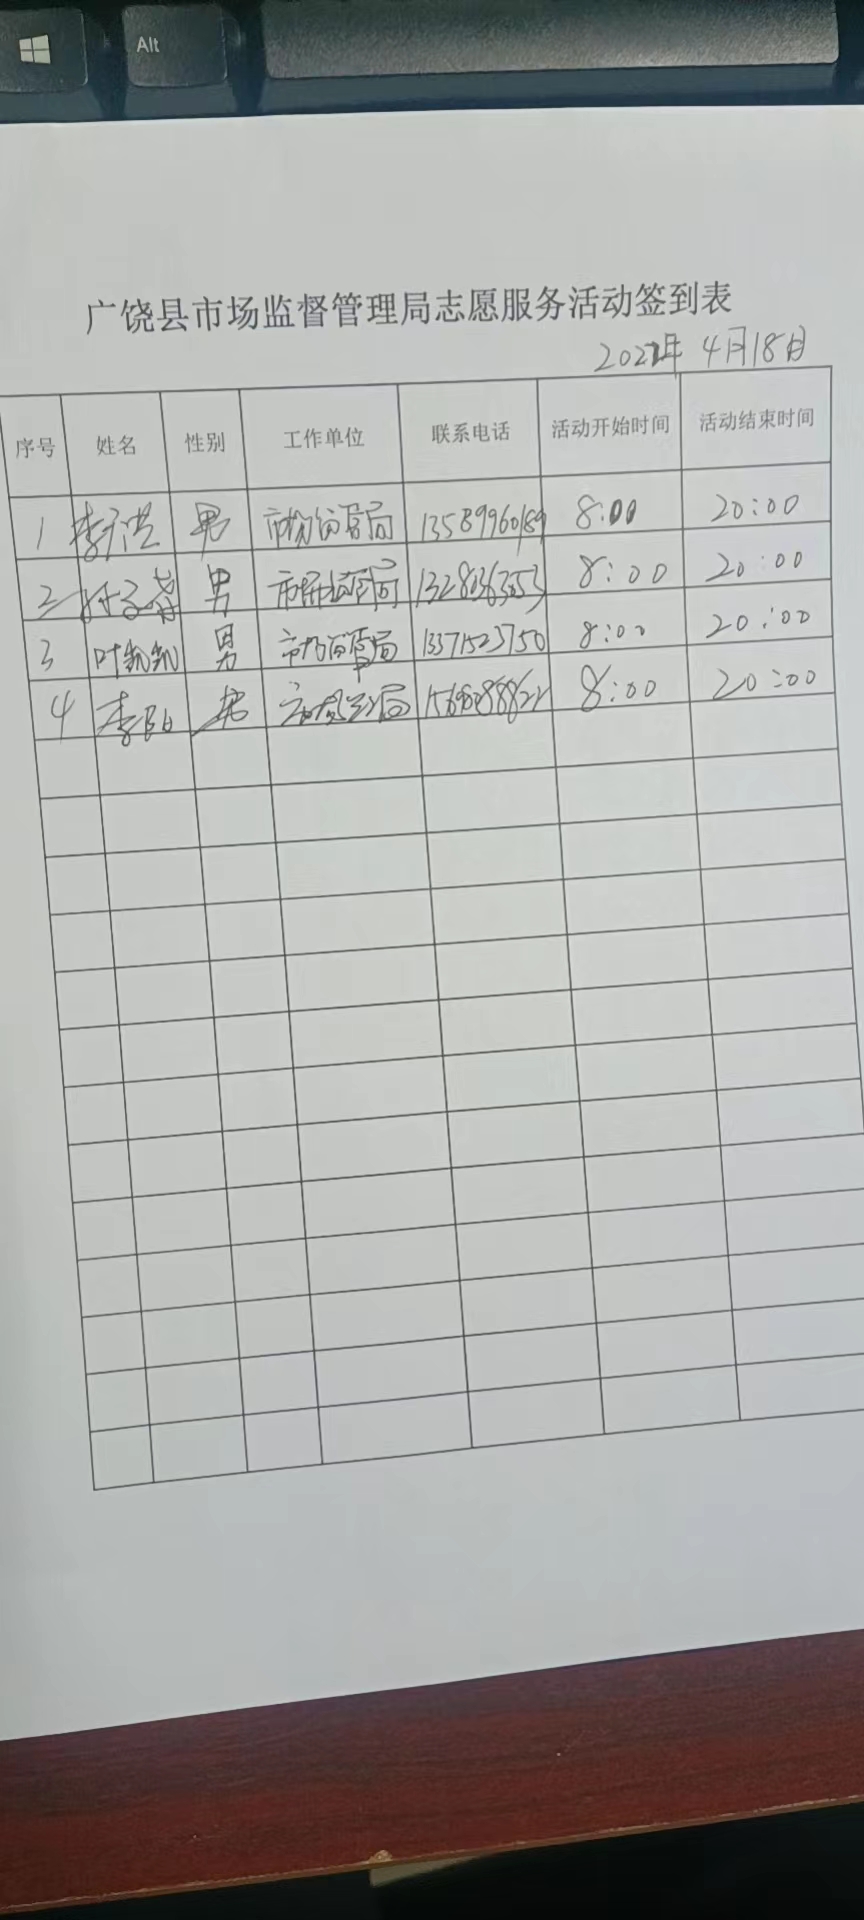 Alt
广饶县市场监督管理局志愿服务活动签到表
2022年 4月18日
序号 姓名 性别 工作单位 联系电话 活动开始时间 活动结束时间
1 李洪 男 市场监管局 13589960189 8:00 20:00
2 男 市场监管局 13280363053 8:00 20:00
3 叶凯凯 男 市场监管局 13371523750 8:00 20:00
4 李阳 男 市场监管局 8:00 20:00